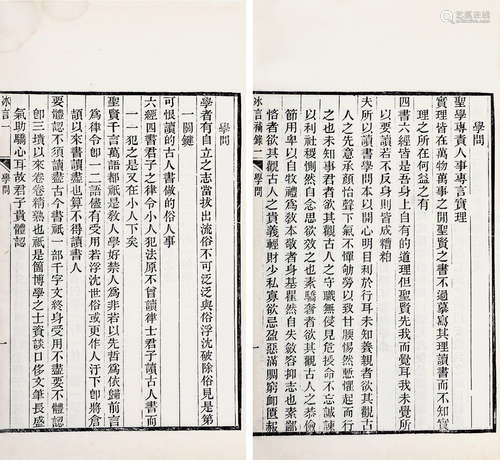 學問
聖學專責人事專言實理
實理皆在萬物萬事之間聖賢之書不過摹寫其理讀書而不知實
理之所在何益之有
四書六經皆是吾身上自有的道理但聖賢先我而覺耳我未覺所
以要讀若不反身則皆成糟粕
夫所以讀書學問本以開心明目利於行耳未知養親者欲其觀古
人之先意承顏怡聲下氣不憚劬勞以致甘腝惕然慚懼起而行
之也未知事君者欲其觀古人之守職無侵見危授命不忘誠諫
以利社稷惻然自念思欲效之也素驕奢者欲其觀古人之恭儉
節用卑以自牧禮為敎本敬者身基瞿然自失斂容抑志也素鄙
恡者欲其觀古人之貴義輕財少私寡欲忌盈惡滿賙窮卹匱赧
冰言補錄 學問 一
學問
學者有自立之志當拔出流俗不可泛泛與俗浮沈破除俗見是第
一關鍵
可恨讀的古人書做的俗人事
六經四書君子之律令小人犯法原不曾讀律士君子讀古人書而
一一犯之是又在小人下矣
聖賢千言萬語都祇是敎人學好禁人為非若以先哲為依歸前言
為律令卽一二語儘有受用若浮沈世俗或更作人汙下卽將倉
頡以來書讀盡也算不得讀書人
要體認不須讀盡古今書祇一部千字文終身受用不盡要不體認
卽三墳以來卷卷精熟也祇是箇博學之士資談口侈文筆長盛
氣助驕心耳故君子貴體認
冰言一 學問 一